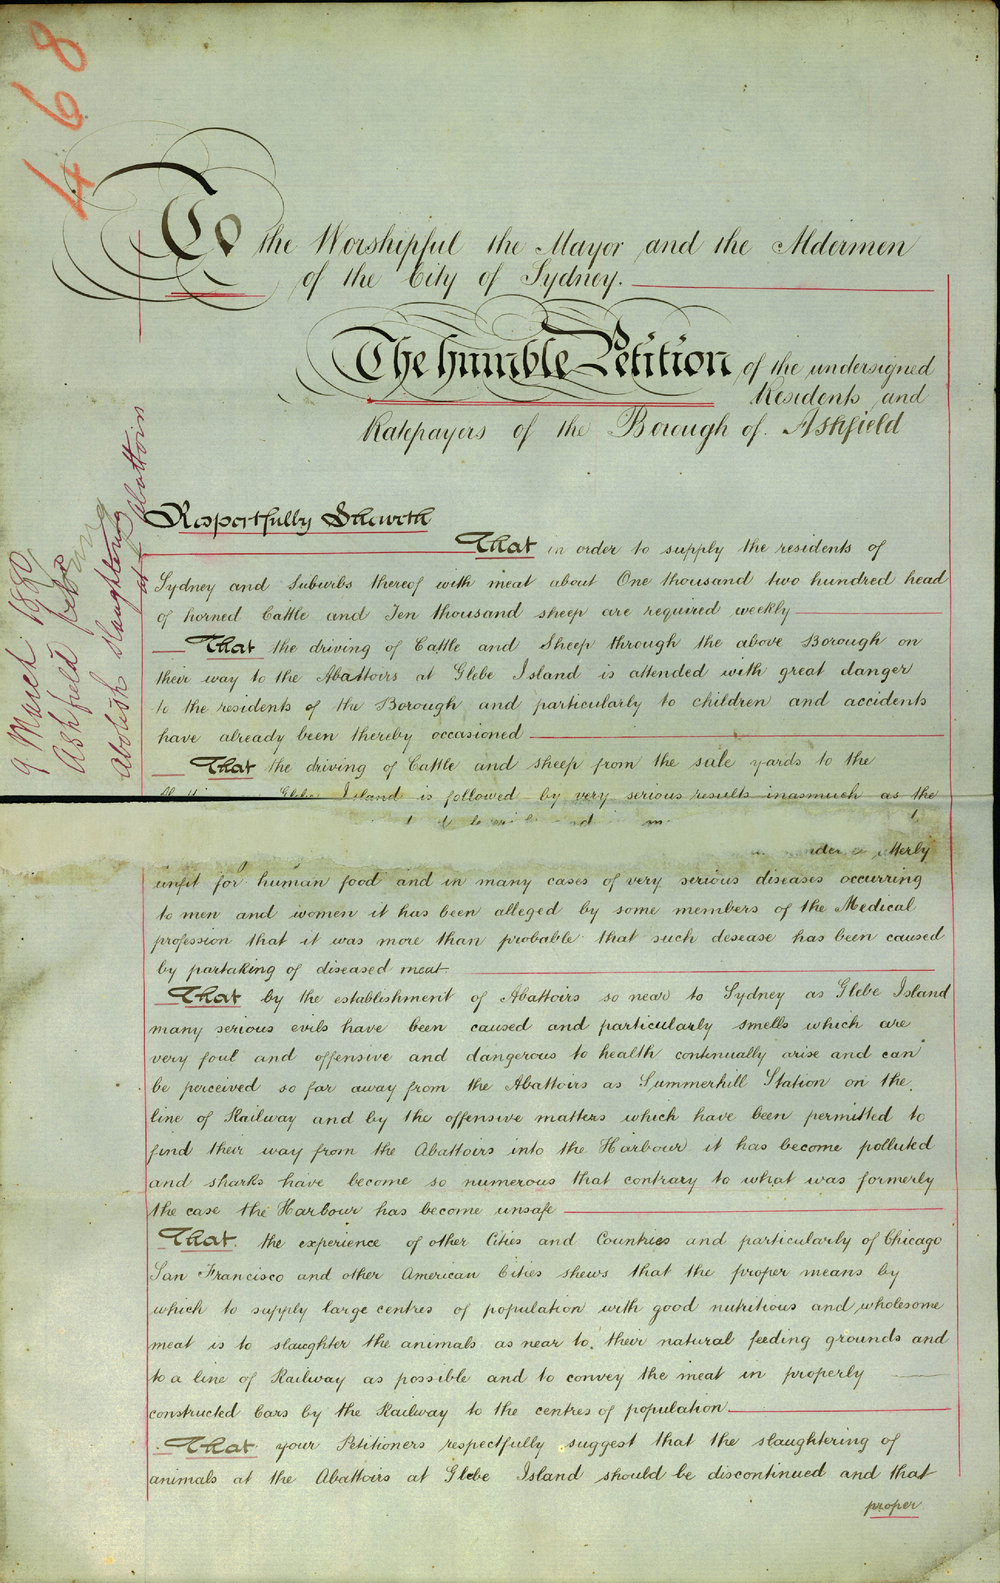 468
To the Worshipful the Mayor and the Aldermen
of the City of Sydney.
The humble Petition of the undersigned
Residents and
Ratepayers of the Borough of Ashfield
9 March 1880
Ashfield
abolish slaughtering
at Abattoirs
Respectfully Sheweth
That in order to supply the residents of
Sydney and Suburbs thereof with meat about One thousand two hundred head
of horned Cattle and Ten thousand sheep are required weekly
That the driving of Cattle and Sheep through the above Borough on
their way to the Abattoirs at Glebe Island is attended with great danger
to the residents of the Borough and particularly to children and accidents
have already been thereby occasioned
That the driving of Cattle and sheep from the sale yards to the
Glebe Island is followed by very serious results inasmuch as the
utterly
unfit for human food and in many cases of very serious diseases occurring
to men and women it has been alleged by some members of the Medical
profession that it was more than probable that such desease has been caused
by partaking of diseased meat
That by the establishment of Abattoirs so near to Sydney as Glebe Island
many serious evils have been caused and particularly smells which are
very foul and offensive and dangerous to health continually arise and can
be perceived so far away from the Abattoirs as Summerhill Station on the
line of Railway and by the offensive matters which have been permitted to
find their way from the Abattoirs into the Harbour it has become polluted
and sharks have become so numerous that contrary to what was formerly
the case the Harbour has become unsafe
That the experience of other Cities and Countries and particularly of Chicago
San Francisco and other American Cities shews that the proper means by
which to supply large centres of population with good nutritious and wholesome
meat is to slaughter the animals as near to their natural feeding grounds and
to a line of Railway as possible and to convey the meat in properly
constructed Cars by the Railway to the centres of population
That your Petitioners respectfully suggest that the slaughtering of
animals at the Abattoirs at Glebe Island should be discontinued and that
proper